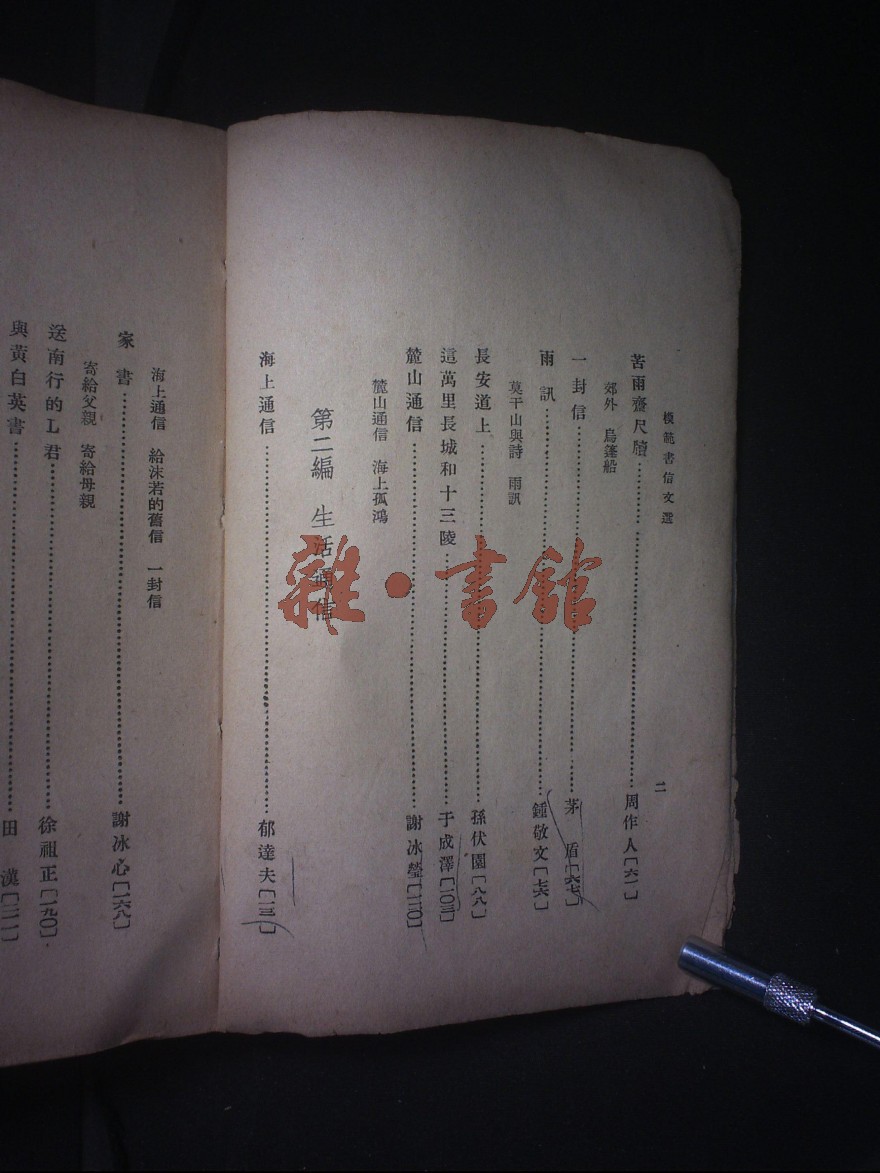 模範書信文選
二
苦雨齋尺牘……周作人〔六一〕
郊外 烏篷船
一封信……茅 盾〔六七〕
雨訊……鍾敬文〔七六〕
莫干山與詩 雨訊
長安道上……孫伏園〔八八〕
這萬里長城和十三陵……于成澤〔一〇三〕
麓山通信……謝冰瑩〔一二〇〕
麓山通信 海上孤鴻
第二編 生活通信
海上通信……郁達夫〔一三一〕
海上通信 給沫若的舊信 一封信
家書……謝冰心〔一六八〕
寄給父親 寄給母親
送南行的L君……徐祖正〔一九〇〕
與黃白英書……田 漢〔二一一〕
雜·書館